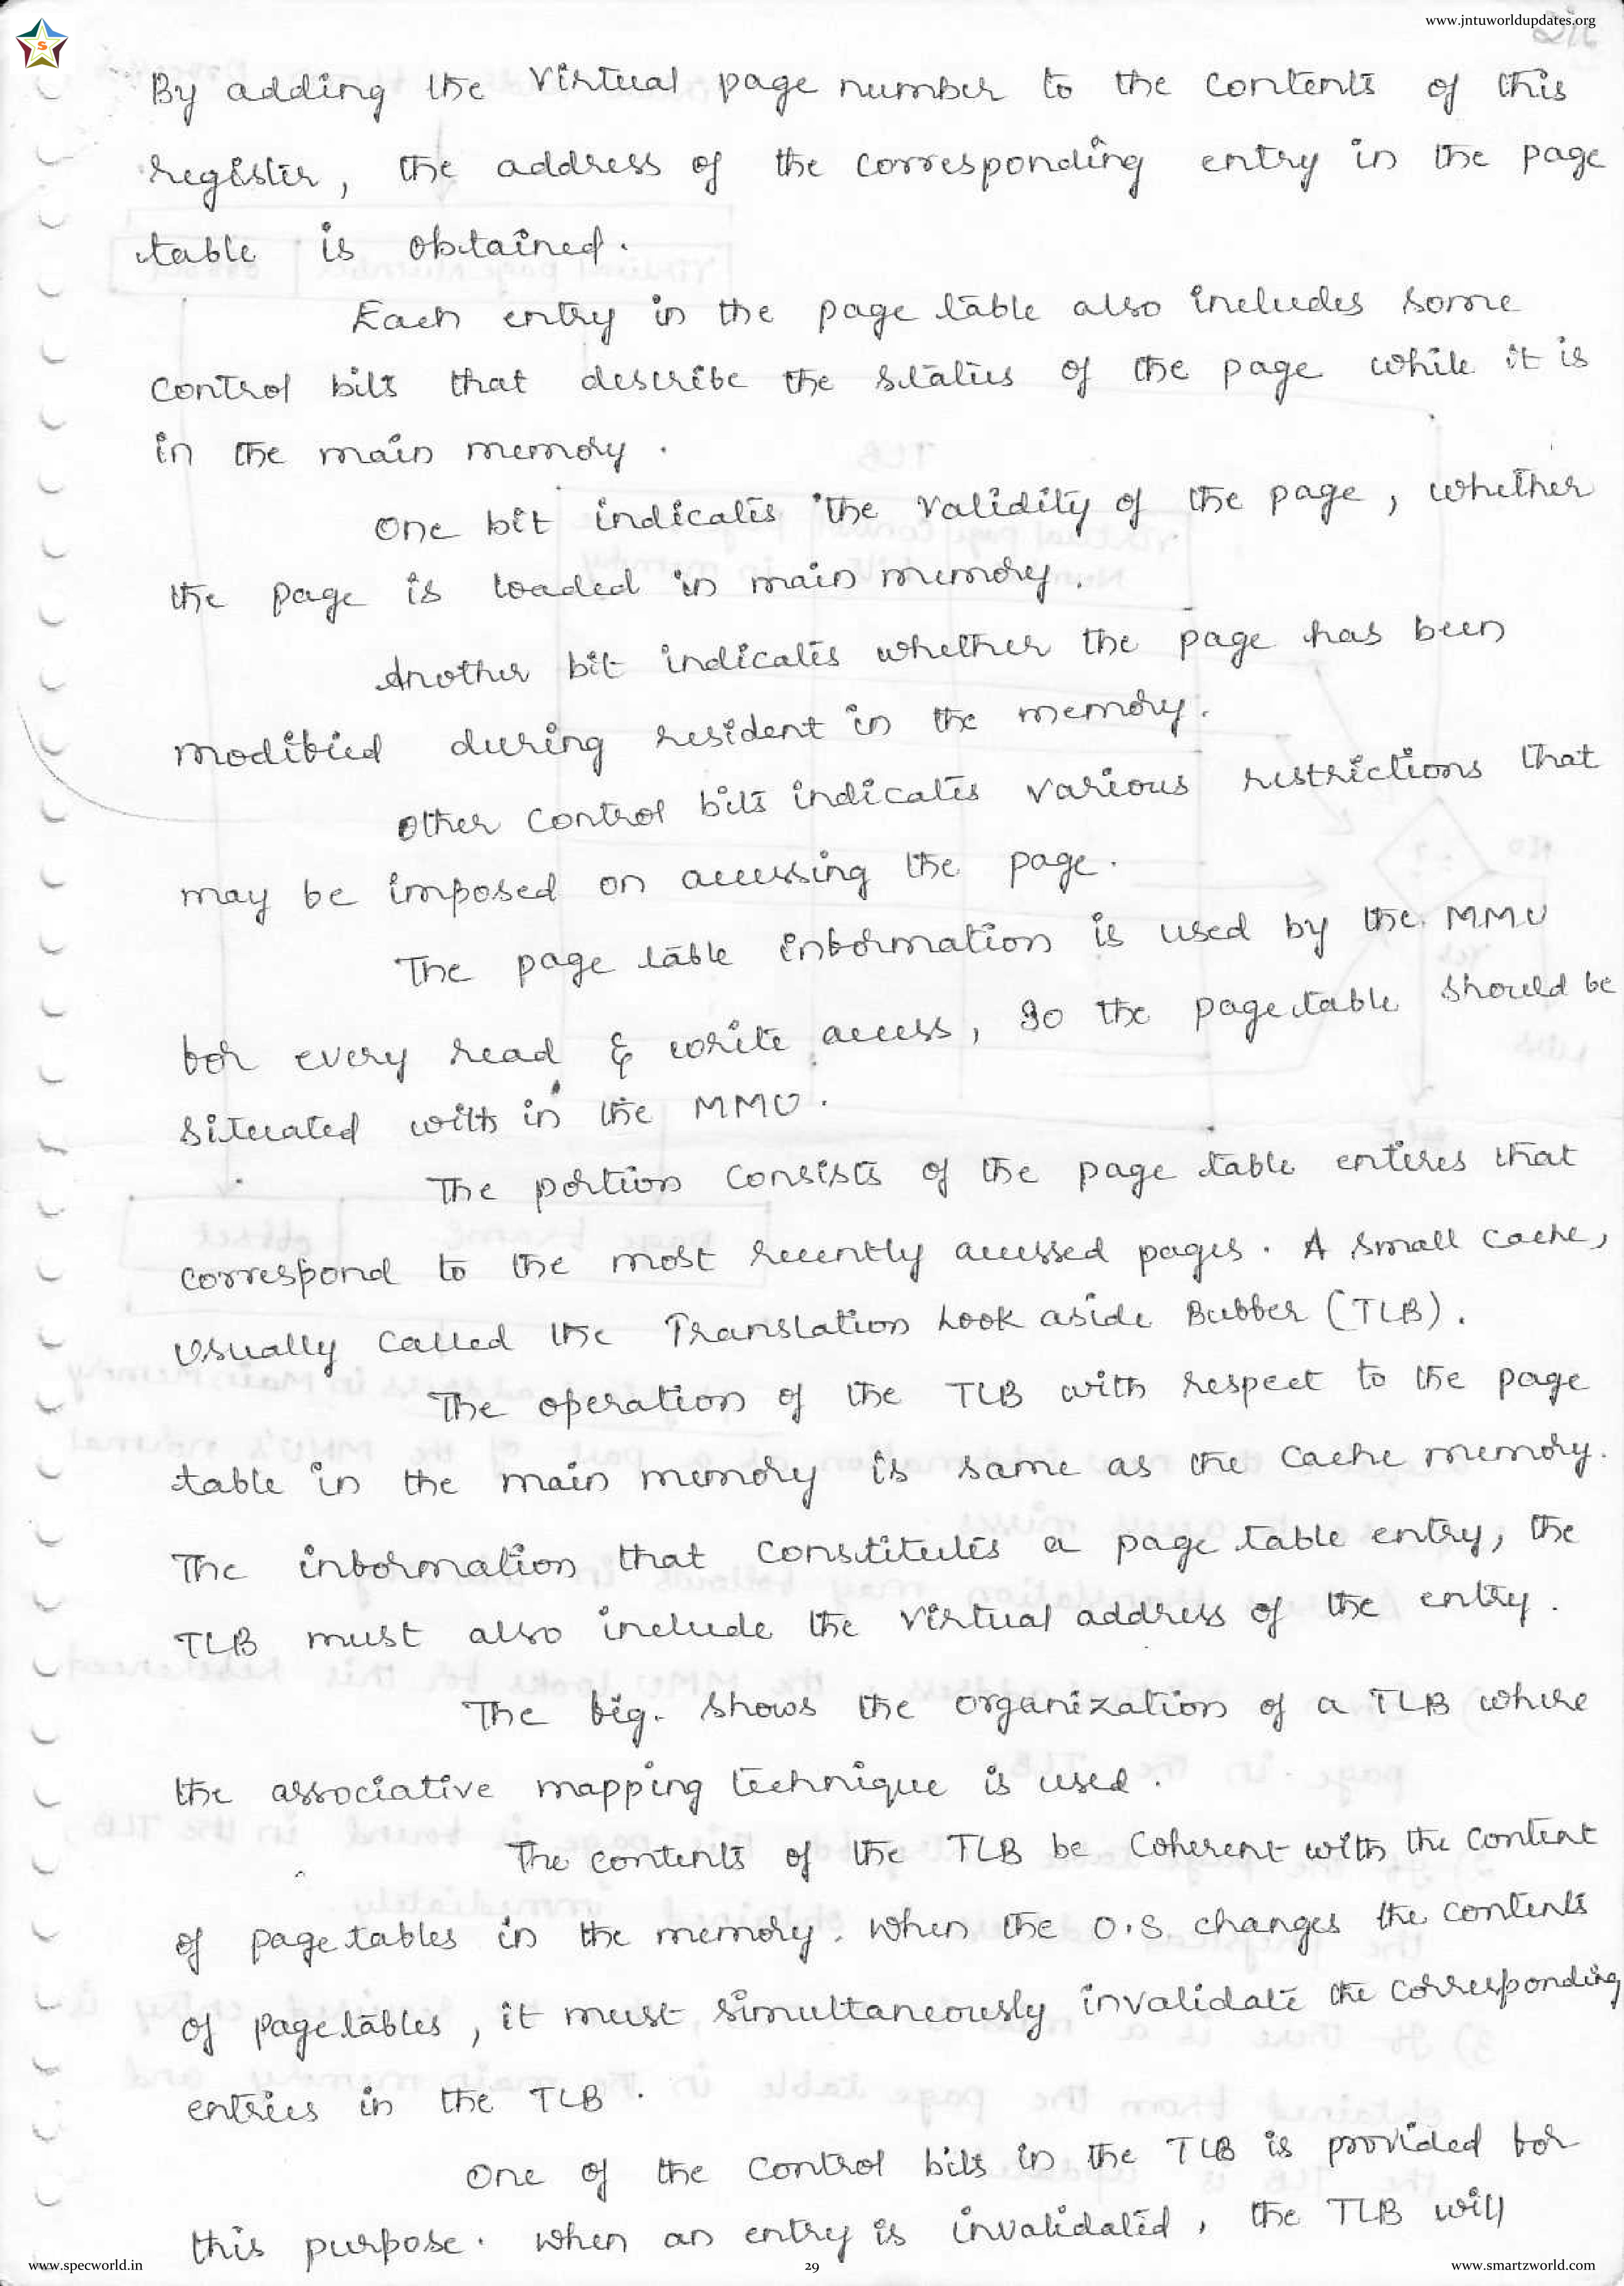 www.jntuworldupdates.org
S
By adding the Virtual page number to the contents of this
register, the address of the corresponding entry in the page
table is obtained.
Each entry in the page table also includes some
control bits that describe the status of the page while it is
in the main memory.
One bit indicates the validity of the page, whether
the page is loaded in main memory.
Another bit indicates whether the page has been
modified during resident in the memory.
Other control bits indicates various restrictions that
may be imposed on accessing the page.
The page table information is used by the MMU
for every read & write access, so the page table should be
situated with in the MMU.
The portion consists of the page table enteres that
correspond to the most recently accessed pages. A small cache,
usually called the Translation Look aside Buffer (TLB).
The operation of the TLB with respect to the page
table in the main memory is same as the cache memory.
The information that constitutes a page table entry, the
TLB must also include the virtual address of the entry.
The fig. shows the organization of a TLB where
the associative mapping technique is used.
The contents of the TLB be coherent with the content
of page tables in the memory. When the O.S. changes the contents
of page tables, it must simultaneously invalidate the corresponding
entries in the TLB.
One of the control bits in the TLB is provided for
this purpose. When an entry is invalidated, the TLB will
www.specworld.in
29
www.smartzworld.com